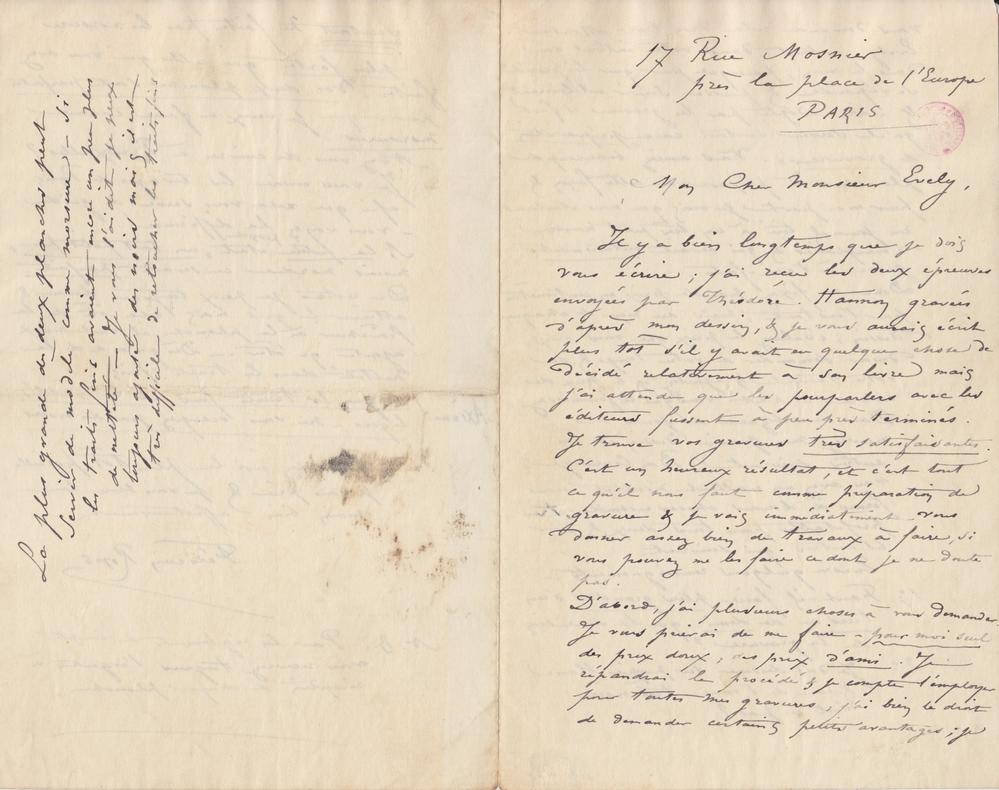 17 Rue Mosnier
près la place de l'Europe
PARIS
Mon Cher Monsieur Evely,
Il y a bien longtemps que je dois
vous écrire ; j'ai reçu les deux épreuves
envoyées par Théodore Hannon gravées
d'après mon dessin, & je vous aurais écrit
plus tôt s'il y avait eu quelque chose de
décidé relativement à son livre mais
j'ai attendu que les pourparlers avec les
éditeurs fussent à peu près terminés.
Je trouve vos gravures très satisfaisantes.
C'est un heureux résultat, et c'est tout
ce qu'il nous faut comme préparation de
gravure & je vais immédiatement vous
donner assez bien de travaux à faire, si
vous pouvez me les faire ce dont je ne doute
pas.
D'abord, j'ai plusieurs choses à vous demander.
Je vous prierai de me faire – pour moi seul
des prix doux, des prix d'ami. Je
répandrai le procédé & je compte l'employer
pour toutes mes gravures, j'ai bien le droit
de demander certains petits avantages ; je
La plus grande des deux planches peut
servir de modèle comme morsure – si
les traits fins avaient encore un peu plus
de netteté – Je vous l'ai dit je peux
toujours ajouter des noirs mais il est
très difficile de retoucher les traits fins